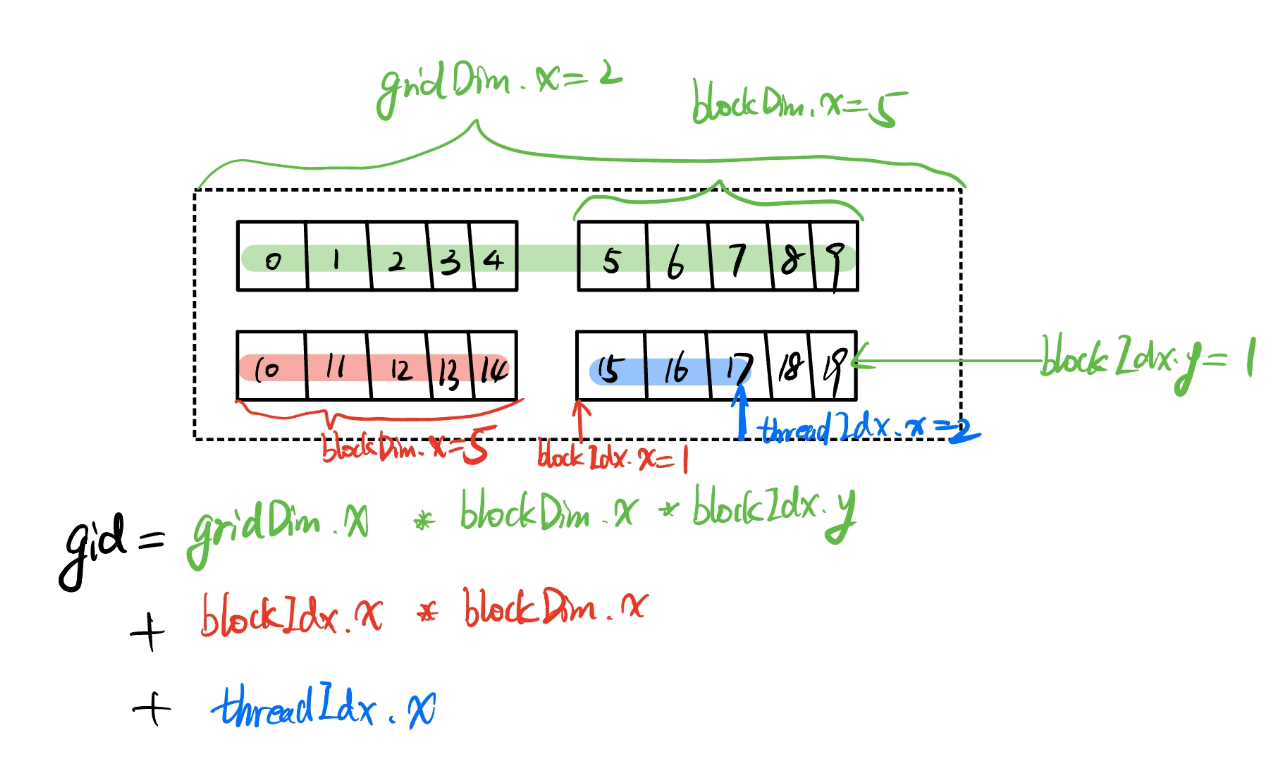 gridDim.x=2
blockDim.x=5
0 1 2 3 4 5 6 7 8 9
10 11 12 13 14 15 16 17 18 19
blockIdx.y=1
blockDim.x=5
blockIdx.x=1
threadIdx.x=2
gid = gridDim.x * blockDim.x * blockIdx.y
+ blockIdx.x * blockDim.x
+ threadIdx.x